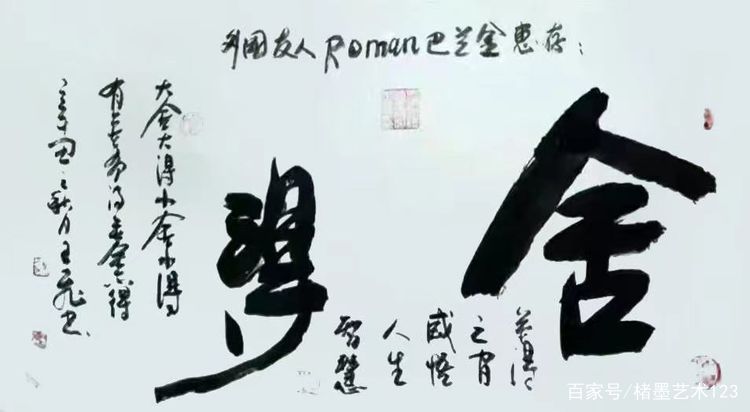 外国友人Roman巴兰金惠存：
舍得
得
之
感悟
人生
智慧
大舍大得小舍小得
有舍
得
秋月王飛书
百家号/楮墨艺术123